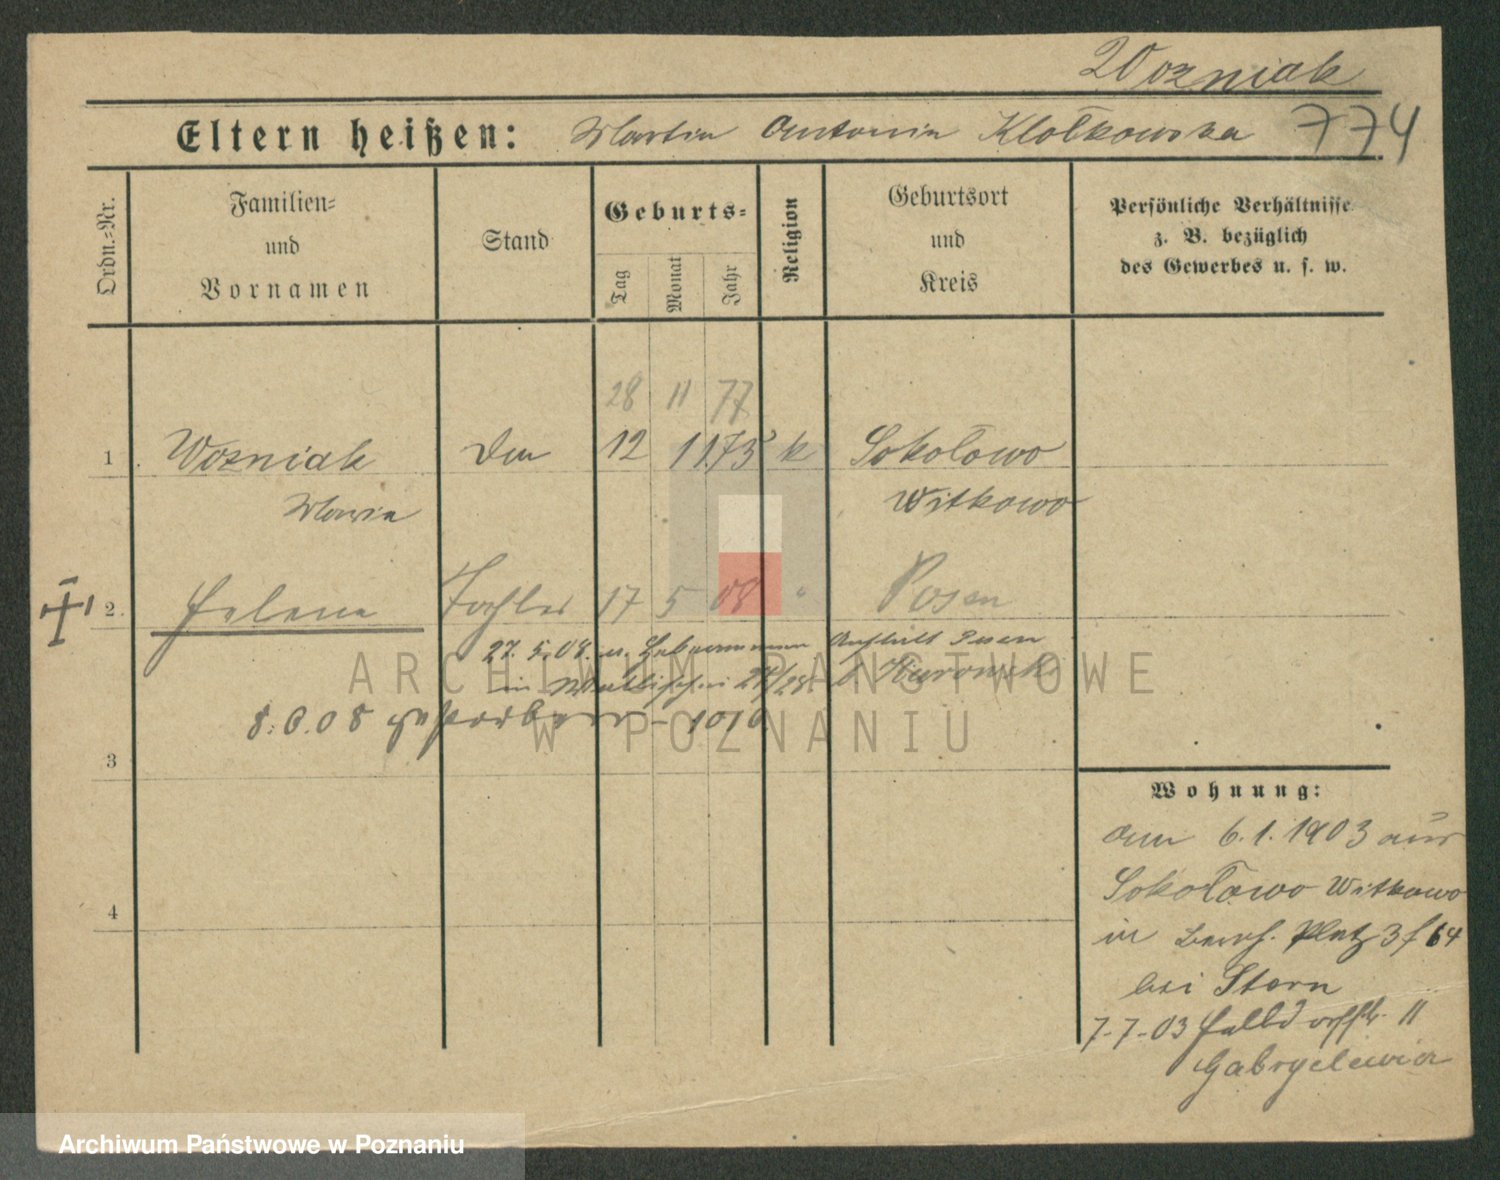 Wozniak
Eltern heißen: Martin Antonin Klotkowska 774
Ordn.=Nr.
Familien=
und
Vornamen
Stand
Geburts=
Tag
Monat
Jahr
Religion
Geburtsort
und
Kreis
Persönliche Verhältnisse
z. B. bezüglich
des Gewerbes u. s. w.
28 11 77
1 Wozniak 12 11 75 k Sokołowo
Maria Witkowo
2. Helene Tochter 17 5 08 " Posen
27. 5. 08. u. Hebamme Posen
in 27/28 b
8. 6. 08 gestorben - 1010
3
4
Wohnung:
am 6.1.1903 aus
Sokołowo Witkowo
in Platz 3 f 64
bei Stern
7-7-03 11
ARCHIWUM PAŃSTWOWE
W POZNANIU
Archiwum Państwowe w Poznaniu